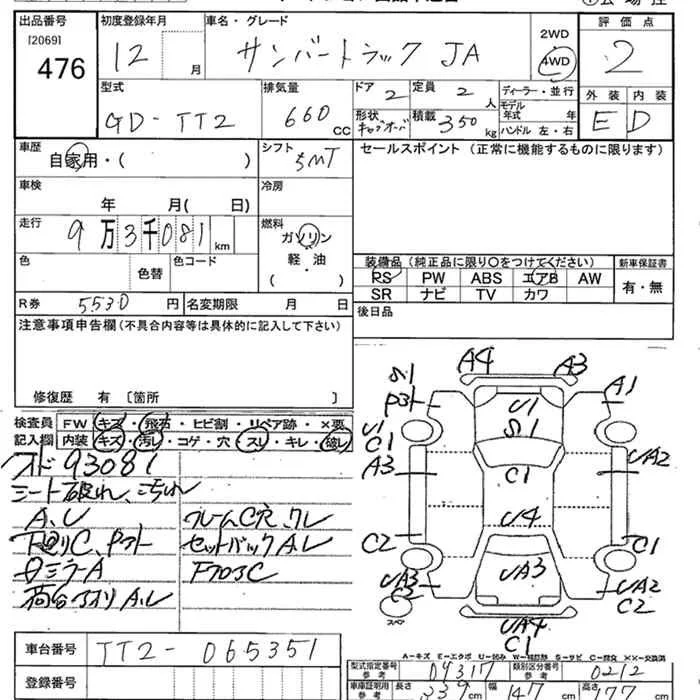 出品番号
[2069]
476
初度登録年月
12 月
車名・グレード
サンバートラック JA
2WD
4WD
評価点
2
外装 内装
E D
型式
GD-TT2
排気量
660 CC
ドア 2
定員 2 人
形状 キャブオーバ
積載 350 kg
ディーラー・並行
モデル年式 年
ハンドル 左・右
車歴
自家用・( )
シフト
5MT
セールスポイント (正常に機能するものに限ります)
車検
年 月( 日)
冷房
走行
9万3千081km
燃料
ガソリン
軽・油
( )
色
色替
色コード
R券 5530 円
名変期限 月 日
装備品 (純正品に限り○をつけてください)
PS PW ABS エアB AW
SR ナビ TV カワ
新車保証書
有・無
後日品
注意事項申告欄(不具合内容等は具体的に記入して下さい)
修復歴 有 〔箇所 〕
検査員記入欄
FW キズ・飛石・ヒビ割・リペア跡・×要
内装 キズ・汚レ・コゲ・穴・スレ・キレ・破レ
メーター 93081
シート破れ、汚れ
A、U
フレームC穴、クレ
下廻りC、Pスト
セットバックA、U
ミラーA
フロアC
荷台アオリA、U
A4 A3
S1
Pスト
A1
U1
C1
U1
S1
A3
C1
UA2
U4
C2
C1
UA3
C2
UA3
UA2
C2
UA4
C1
スペア
A-キズ E-エクボ U-凹み W-補修跡 S-サビ C-腐食 XX-交換済
車台番号 TT2-065351
登録番号
型式指定番号 参考 04317
類別区分番号 参考 0212
車庫証明用 参考
長さ 339 cm 幅 147 cm 高さ cm